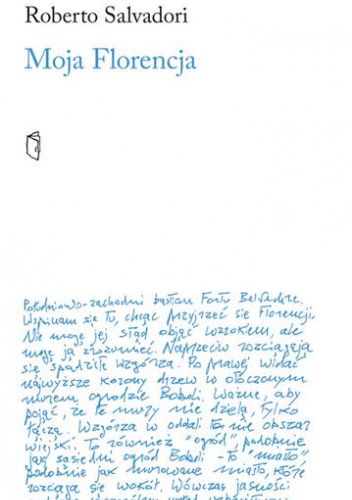 Roberto Salvadori
Moja Florencja
Południowo-zachodni bastion Fortu Belvedere.
Wspinam się tu, chcąc przyjrzeć się Florencji.
Nie mogę jej stąd objąć wzrokiem, ale
mogę ją zrozumieć. Naprzeciw rozciągają
się spadziste wzgórza. Po prawej widać
najwyższe korony drzew w otoczonym
murem ogrodzie Boboli. Ważne, aby
pojąć, że te mury nie dzielą, tylko
łączą. Wzgórza w oddali to nie obszar
wiejski. To również "ogród", podobnie
jak sąsiedni ogród Boboli - to "miasto"
podobnie jak murowane miasto, które
rozciąga się wokół. Wówczas jasności